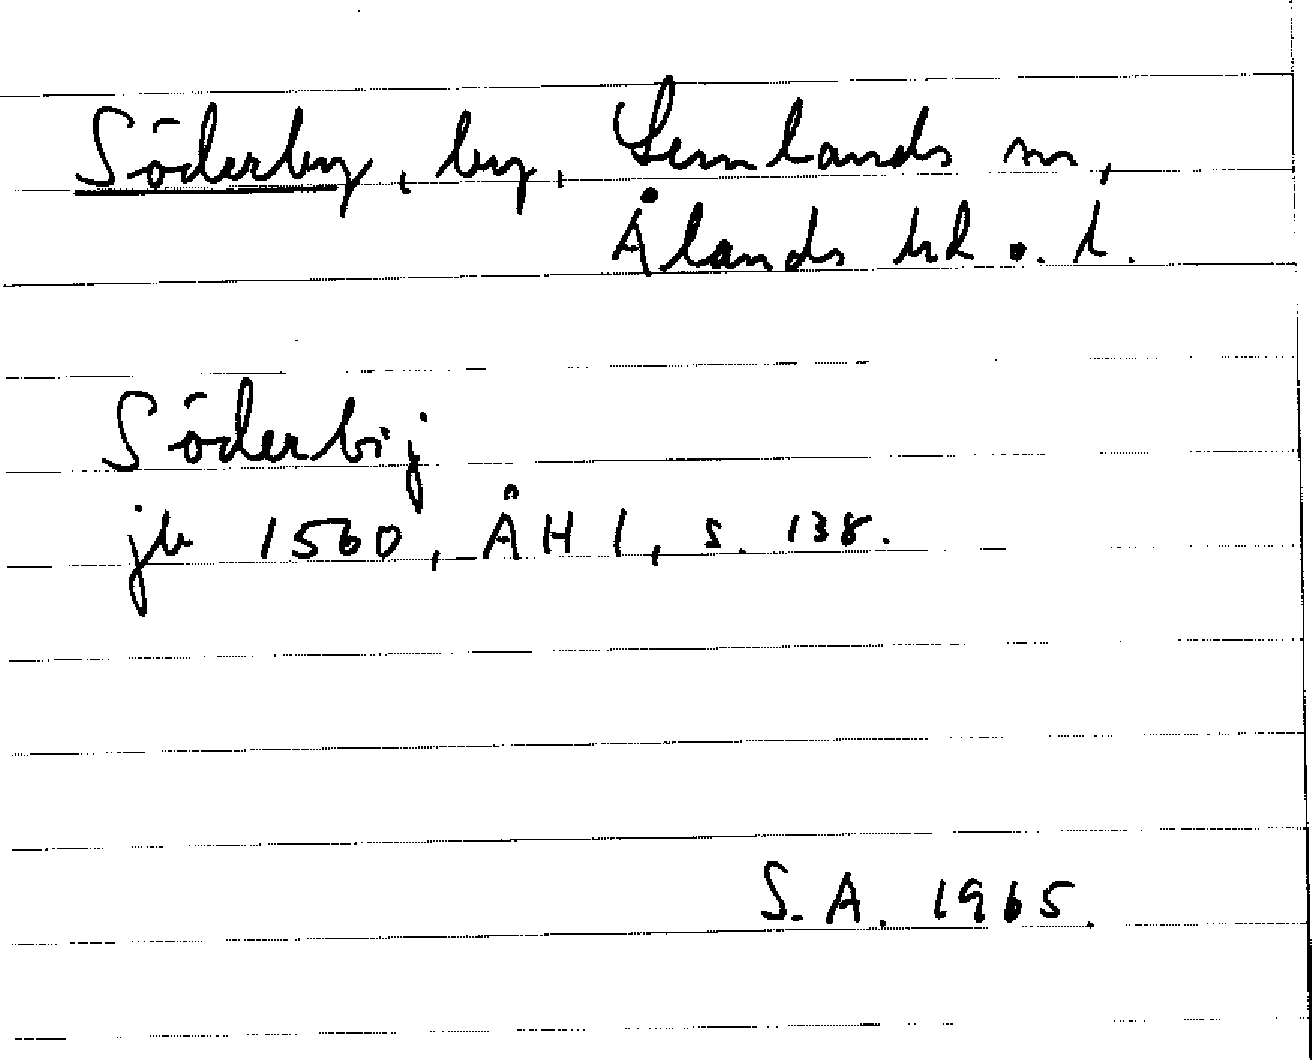 Söderby, by, Lemlands sn,
Ålands hd o. l.
Söderbij
jb 1560, ÅH 1, s. 138.
S. A. 1965.